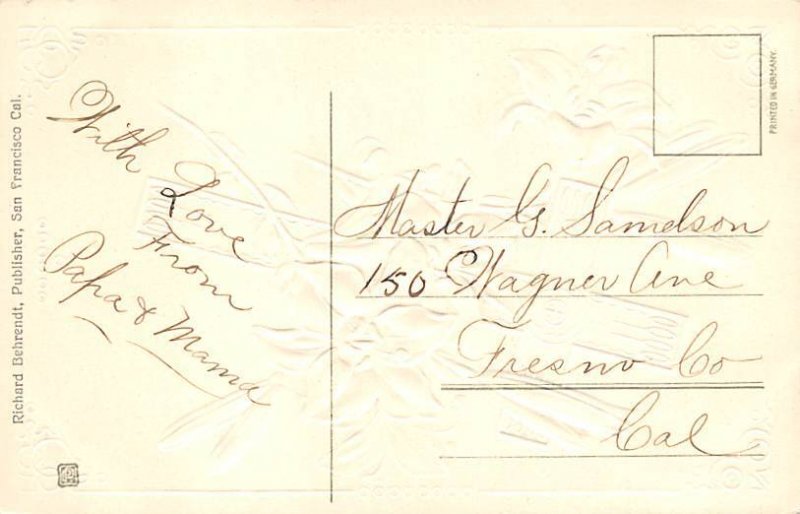 Richard Behrendt, Publisher, San Francisco Cal.
With
Love
From
Papa & Mama
PRINTED IN GERMANY.
Master G. Samelson
150 Wagner Ave
Fresno Co
Cal